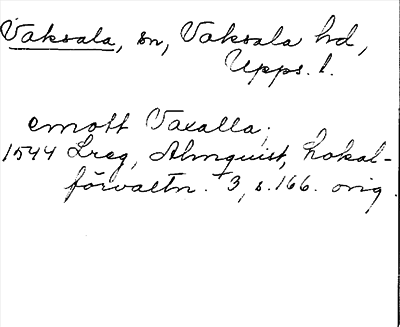 Vaksala, sn, Vaksala hd,
Upps. l.
emott Vaxalla;
1544 Lreg, Almquist, Lokal-
förvaltn. 3, s. 166. orig.